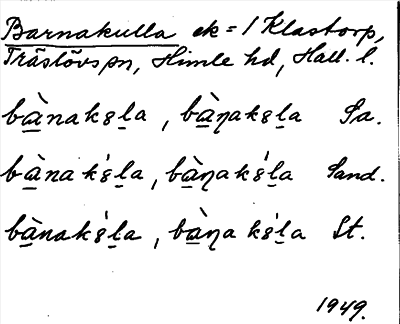 Barnakulla ek = 1 Klastorp,
Träslövs sn, Himle hd, Hall. l.
bà̱naks̱ḻa , bà̱ŋaks̱ḻa Sa.
bà̱nak's̱ḻa , bà̱ŋak's̱ḻa Sand.
bà̱nak's̱ḻa , bà̱ŋa k's̱ḻa St.
1949.